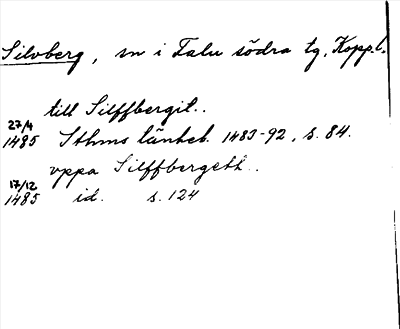 Silvberg, sn i Falu södra tg, Kopp.l.
till Silffbergit..
27/4 1485 Sthms tänkeb. 1483-92, s. 84.
vppa Silffbergett..
17/12 1485 id. s. 124